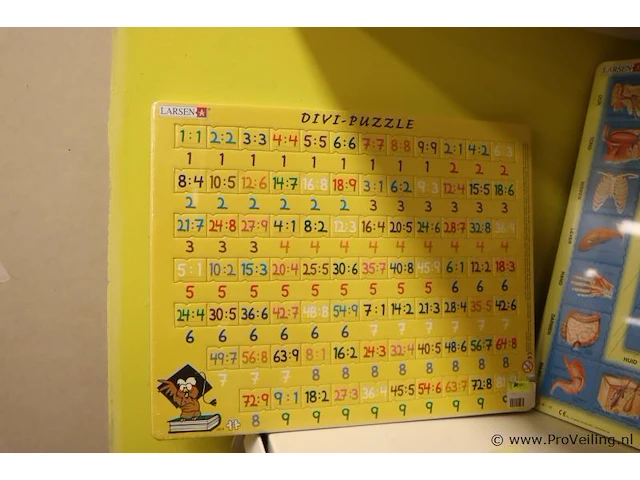 LARSEN
DIVI-PUZZLE
1:1 2:2 3:3 4:4 5:5 6:6 7:7 8:8 9:9 2:1 4:2 6:3
1 1 1 1 1 1 1 1 1 2 2 2
8:4 10:5 12:6 14:7 16:8 18:9 3:1 6:2 9:3 12:4 15:5 18:6
2 2 2 2 2 2 3 3 3 3 3 3
21:7 24:8 27:9 4:1 8:2 12:3 16:4 20:5 24:6 28:7 32:8 36:9
3 3 3 4 4 4 4 4 4 4 4 4
5:1 10:2 15:3 20:4 25:5 30:6 35:7 40:8 45:9 6:1 12:2 18:3
5 5 5 5 5 5 5 5 5 6 6 6
24:4 30:5 36:6 42:7 48:8 54:9 7:1 14:2 21:3 28:4 35:5 42:6
6 6 6 6 6 6 7 7 7 7 7 7
49:7 56:8 63:9 8:1 16:2 24:3 32:4 40:5 48:6 56:7 64:8
7 7 7 8 8 8 8 8 8 8 8
72:9 9:1 18:2 27:3 36:4 45:5 54:6 63:7 72:8
8 9 9 9 9 9 9 9 9
LARSEN
HUID
© www.ProVeiling.nl